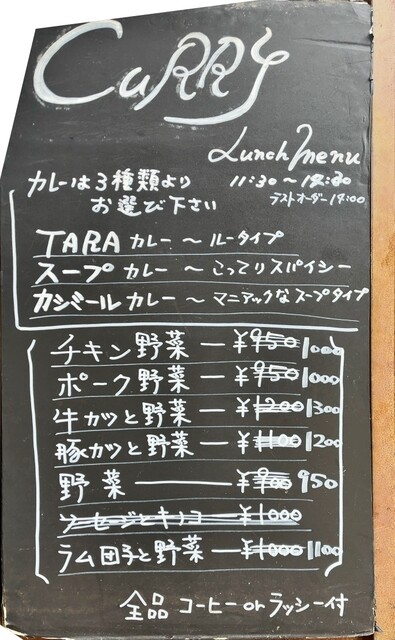 CuRRy
Lunch Menu
カレーは3種類より 11:30〜14:30
お選び下さい ラストオーダー14:00
TARA カレー 〜 ルータイプ
スープ カレー 〜 こってりスパイシー
カシミール カレー 〜 マニアックなスープタイプ
チキン野菜 — ¥950 1000
ポーク野菜 — ¥950 1000
牛カツと野菜 — ¥1200 1300
豚カツと野菜 — ¥1100 1200
野菜 — ¥900 950
ソーセージとキノコ — ¥1000
ラム団子と野菜 — ¥1000 1100
全品 コーヒー or ラッシー付